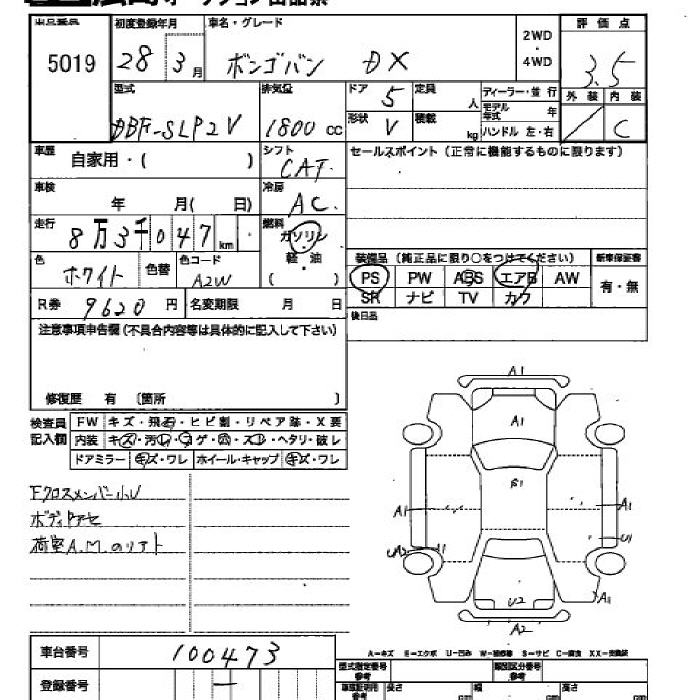 出品番号 初度登録年月 車名・グレード 2WD・4WD 評価点
5019 28 3月 ボンゴバン DX 3.5
型式 排気量 ドア 定員 ディーラー・並行 外装 内装
DBF-SLP2V 1800 cc 5 人 モデル年式 年 C
形状 V 積載 kg ハンドル 左・右
車歴 自家用・( ) シフト CAT セールスポイント(正常に機能するものに限ります)
車検 年 月( 日) 冷房 AC
走行 8万3千047 km 燃料 ガソリン
軽・油
( )
装備品(純正品に限り○をつけてください) 新車保証書
PS PW ABS エアB AW 有・無
SR ナビ TV カワ
色 ホワイト 色替 色コード A2W
R券 9620円 名変期限 月 日 後日品
注意事項申告欄(不具合内容等は具体的に記入して下さい)
修復歴 有 〔箇所 〕
検査員記入欄 FW キズ・飛石・ヒビ割・リペア跡・X要
内装 キズ・汚レ・コゲ・穴・スレ・ヘタリ・破レ
ドアミラー キズ・ワレ ホイール・キャップ キズ・ワレ
Fクロスメンバー小U
荷室A.M.
A1
A1
B1
A1 A1
A2 A1 U1
A1
U2
A2
A-キズ E-エクボ U-凹み W-補修跡 S-サビ C-腐食 XX-交換跡
車台番号 100473
登録番号 —
型式指定番号 参考 類別区分番号 参考
長さ 幅 高さ